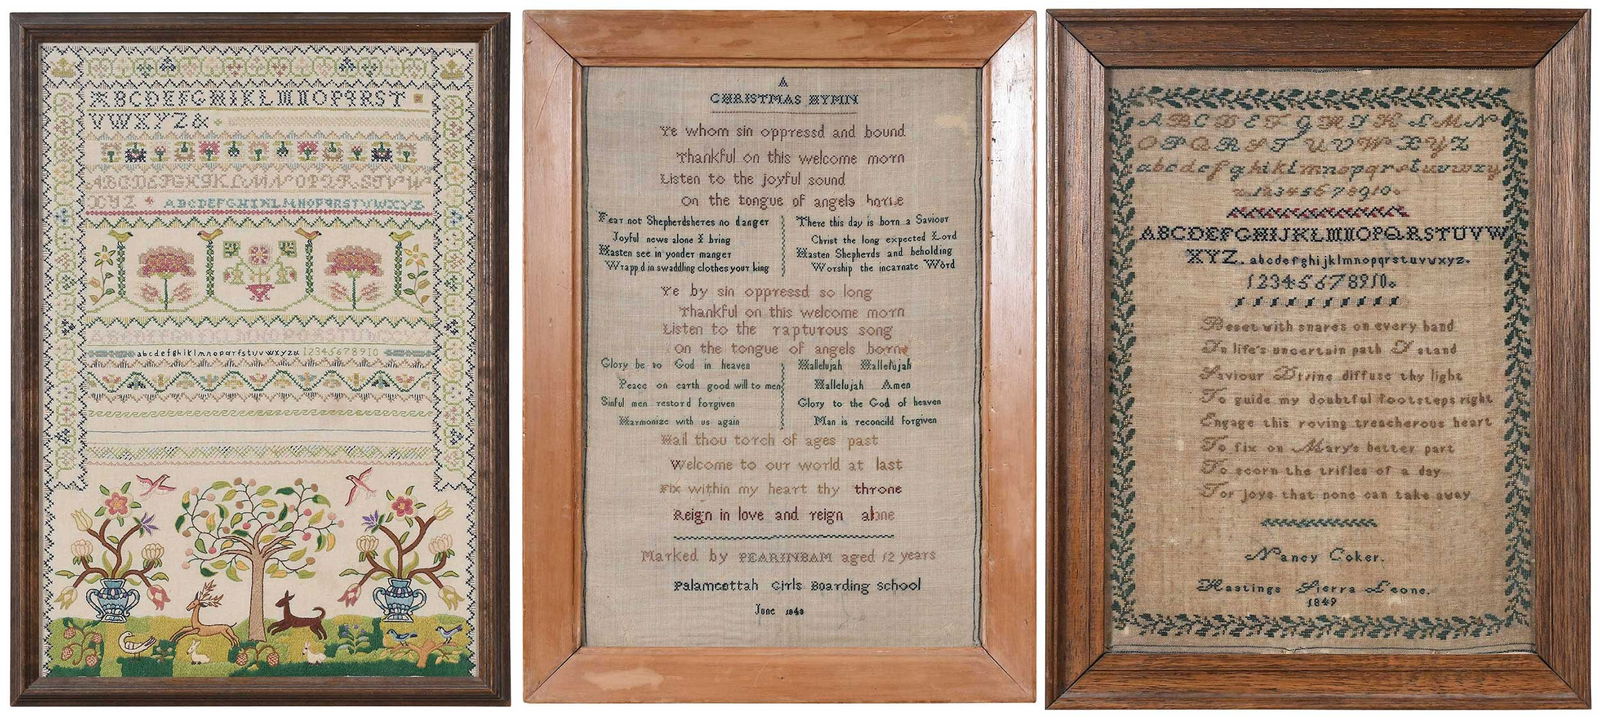 ABCDEFGHIKLMNOPQRST
VWXYZ&
ABCDEFGHIKLMNOPQRSTVW
XYZ ABCDEFGHIKLMNOPQRSTVWXYZ
abcdefghiklmnopqrstuvwxyzu 12345678910
A
CHRISTMAS HYMN
Ye whom sin oppressd and bound
Thankful on this welcome morn
Listen to the joyful sound
On the tongue of angels borne
Fear not Shepherdsheres no danger
Joyful news alone I bring
Hasten see in yonder manger
Wrappd in swaddling clothes your king
There this day is born a Saviour
Christ the long expected Lord
Hasten Shepherds and beholding
Worship the incarnate Word
Ye by sin oppressd so long
Thankful on this welcome morn
Listen to the rapturous song
On the tongue of angels borne
Glory be to God in heaven
Peace on earth good will to men
Sinful men restord forgiven
Harmonize with us again
Hallelujah Hallelujah
Hallelujah Amen
Glory to the God of heaven
Man is reconcild forgiven
Hail thou torch of ages past
Welcome to our world at last
Fix within my heart thy throne
Reign in love and reign alone
Marked by PEARINBAM aged 12 years
Palamcottah Girls Boarding School
June 1848
ABCDEFGHIJKLMN
OPQRSTUVWXYZ
abcdefghiklmnopqrstuvwxy
z 12345678910
ABCDEFGHIJKLMNOPQRSTUVW
XYZ. abcdefghijklmnopqrstuvwxyz.
12345678910.
Beset with snares on every hand
In life's uncertain path I stand
Saviour Divine diffuse thy light
To guide my doubtful footsteps right
Engage this roving treacherous heart
To fix on Mary's better part
To scorn the trifles of a day
For joys that none can take away
Nancy Coker.
Hastings Sierra Leone.
1849